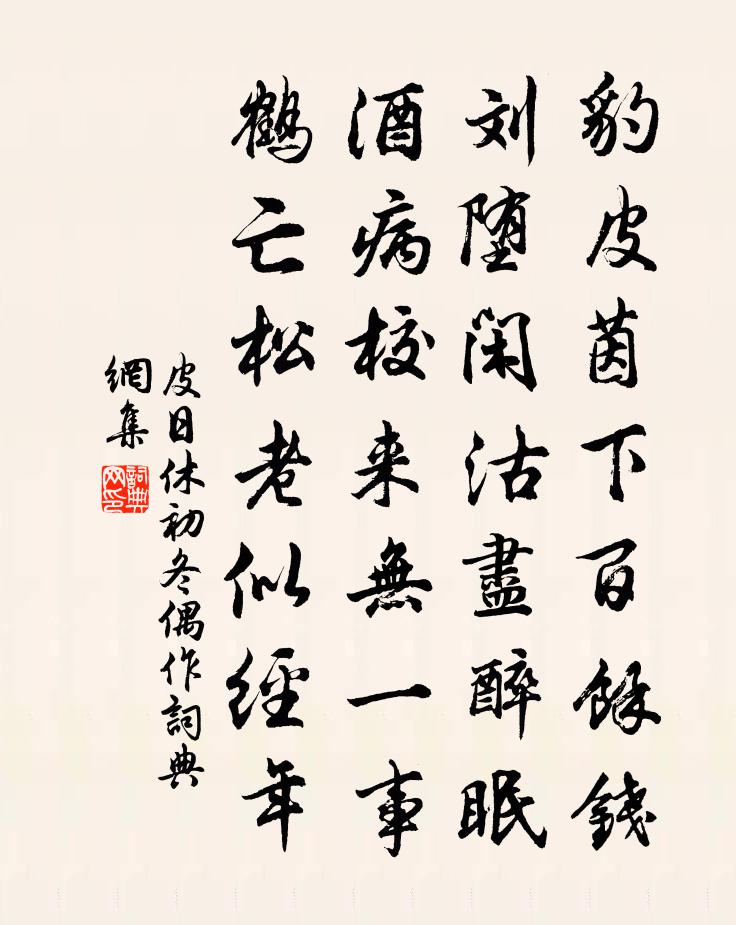 豹皮茵下百餘錢
刘堕閑沽盡醉眠
酒病校来無一事
鶴亡松老似經年
皮日休初冬偶作詞典
網集
詞典
网印